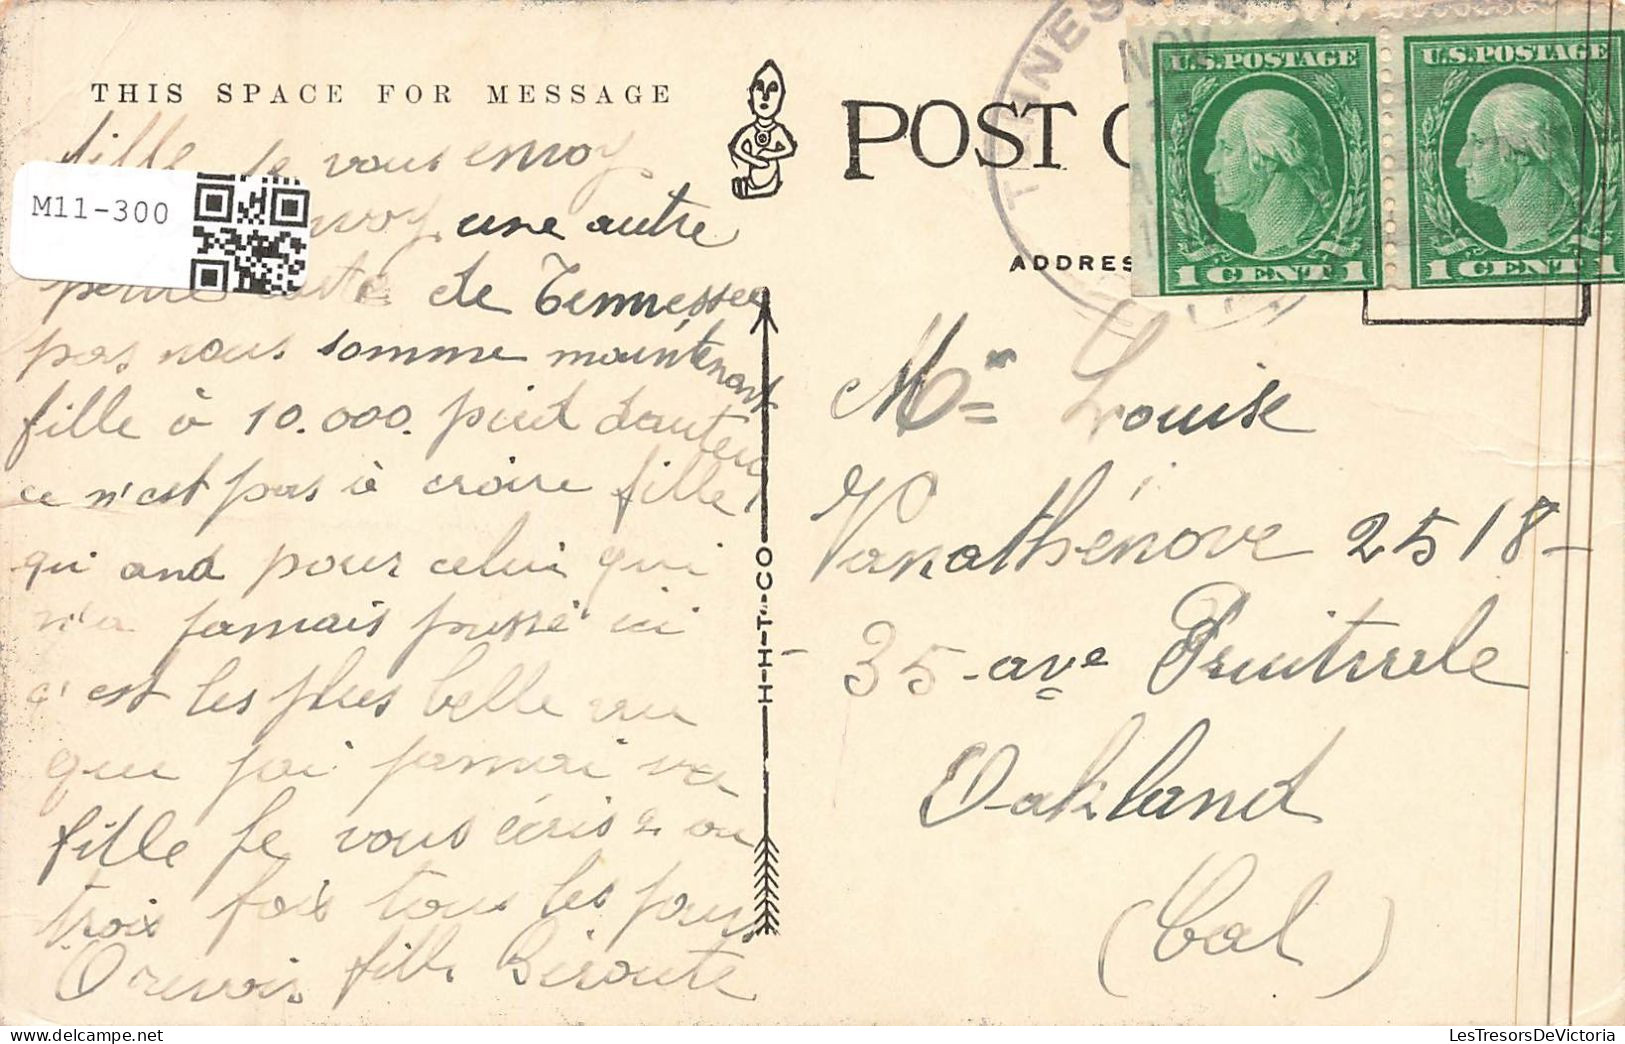 THIS SPACE FOR MESSAGE
POST
ADDRES
U.S. POSTAGE
1 CENT 1
U.S. POSTAGE
1 CENT 1
NOV
M11-300
fille Je vous envoy
une autre
petite carte de Tennessee
pas nous somme maintenant
fille à 10.000. pied dauteur
ce n'est pas à croire fille
qu and pour celui qui
n'a jamais passé ici
c'est les plus belle vue
que jai jamai vu
fille je vous écris 2 ou
trois fois tous les jours
Orevoir fille Beroute
H-H-T-CO
Louise
Vanathénove 2518-
35-ave
Oakland
(Cal)
LesTresorsDeVictoria